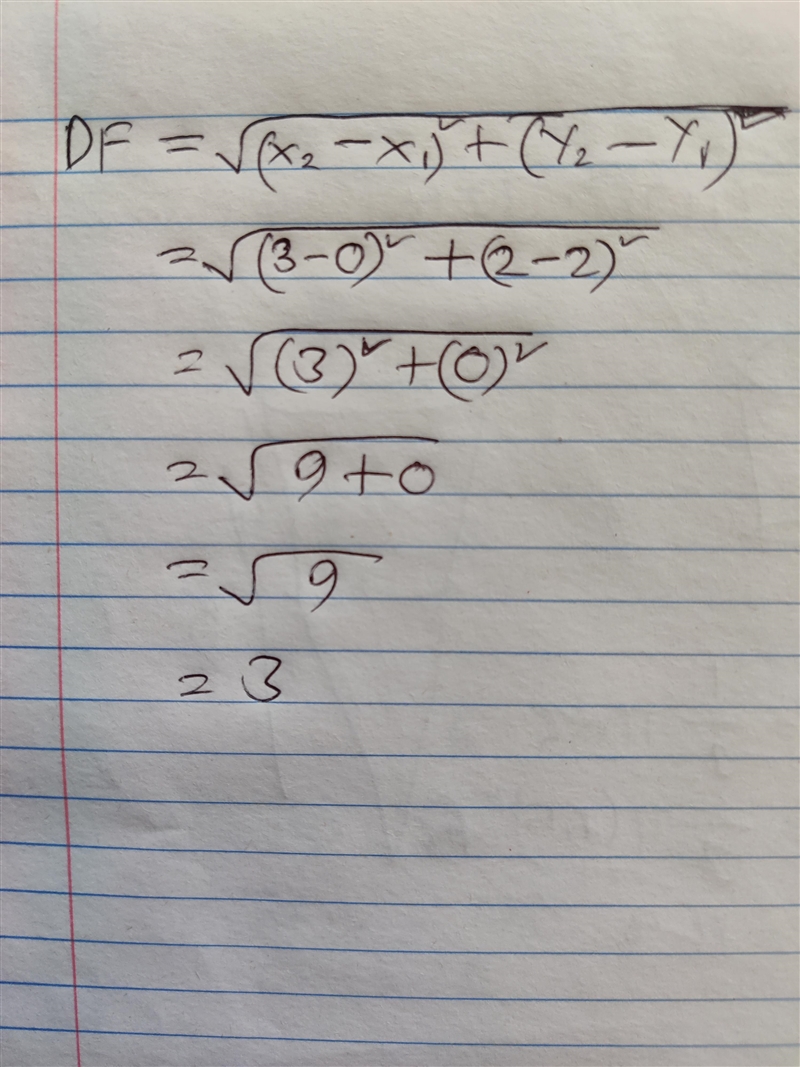 DF = √(x₂ - x₁)² + (Y₂ - Y₁)²
= √(3-0)² + (2-2)²
= √(3)² + (0)²
= √9+0
= √9
= 3